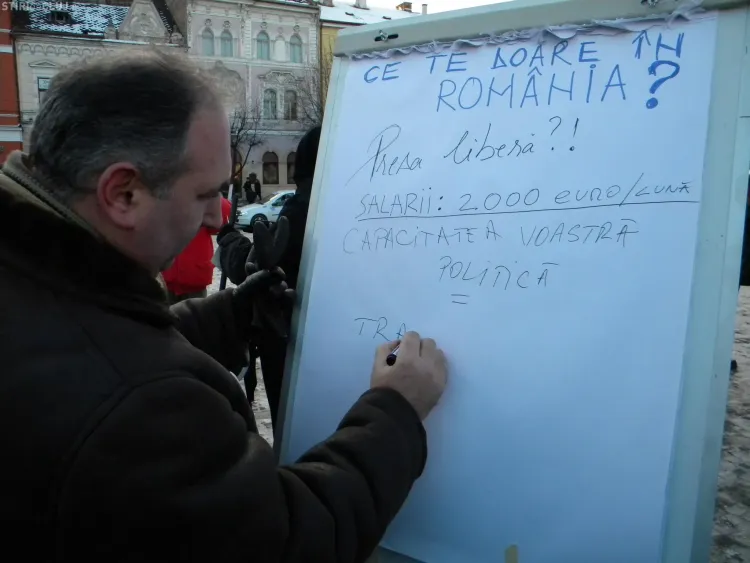 STIRI CLUJ
CE TE DOARE ÎN
ROMÂNIA?
Presa liberă?!
SALARII: 2.000 EURO/LUNĂ
CAPACITATEA VOASTRĂ
POLITICĂ
=
TRA